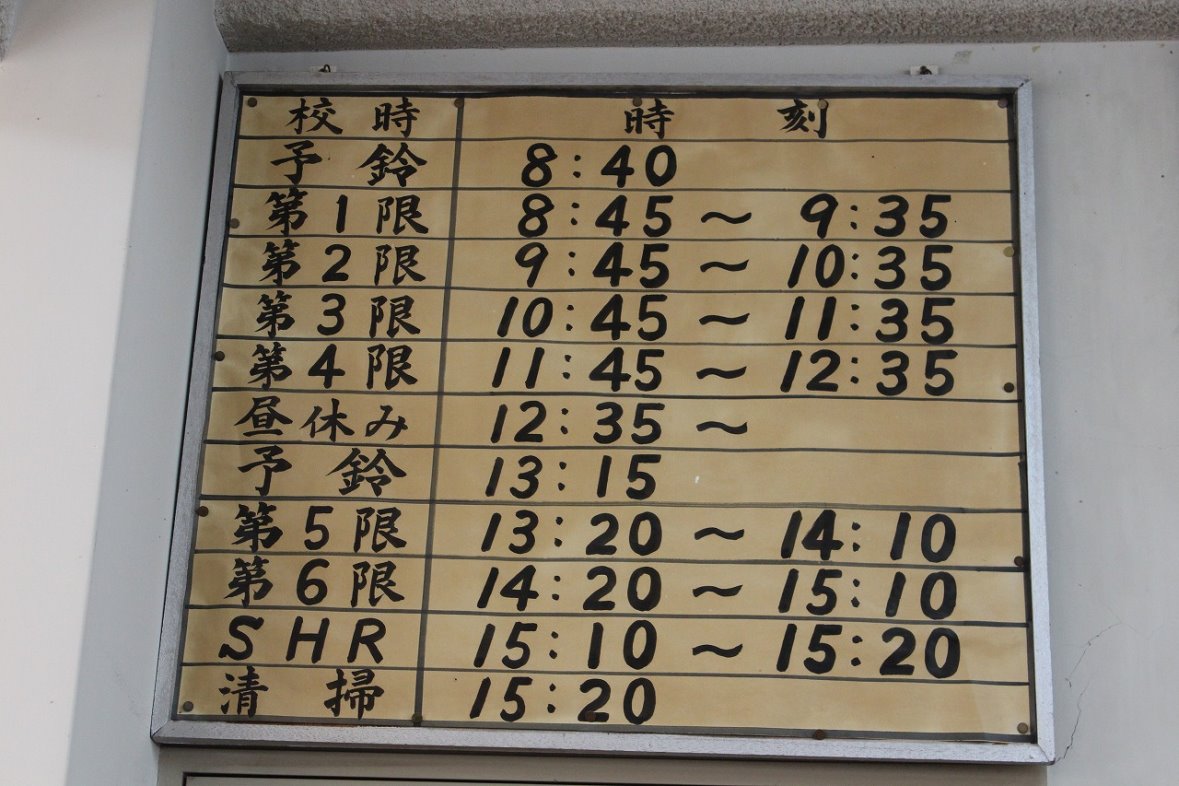 校時 時刻
予鈴 8:40
第1限 8:45～9:35
第2限 9:45～10:35
第3限 10:45～11:35
第4限 11:45～12:35
昼休み 12:35～
予鈴 13:15
第5限 13:20～14:10
第6限 14:20～15:10
SHR 15:10～15:20
清掃 15:20